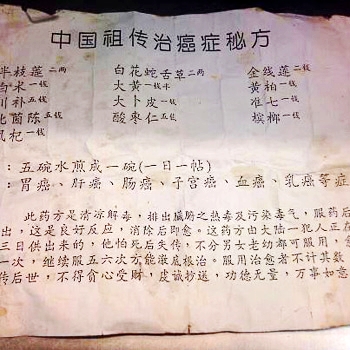 中国祖传治癌症秘方
半枝莲二两 白花蛇舌草二两 金线莲二钱
大黄一钱半 黄柏一钱
川朴五钱 大卜皮一钱 准七一钱
北茵陈五钱 酸枣仁五钱 槟榔一钱
一钱
：五碗水煎成一碗(一日一帖)
：胃癌、肝癌、肠癌、子宫癌、血癌、乳癌等症
此药方是清凉解毒，排出臟腑之热毒及污染毒气，服药后
出，这是良好反应，消除后即愈。这药方由大陆一犯人正在
三日供出来的，他怕死后失传，不分男女老幼都可服用，
一次，继续服五六次方能澈底根治。服用治愈者不计其数
传后世，不得贪心受财，虔诚抄送，功德无量，万事如意